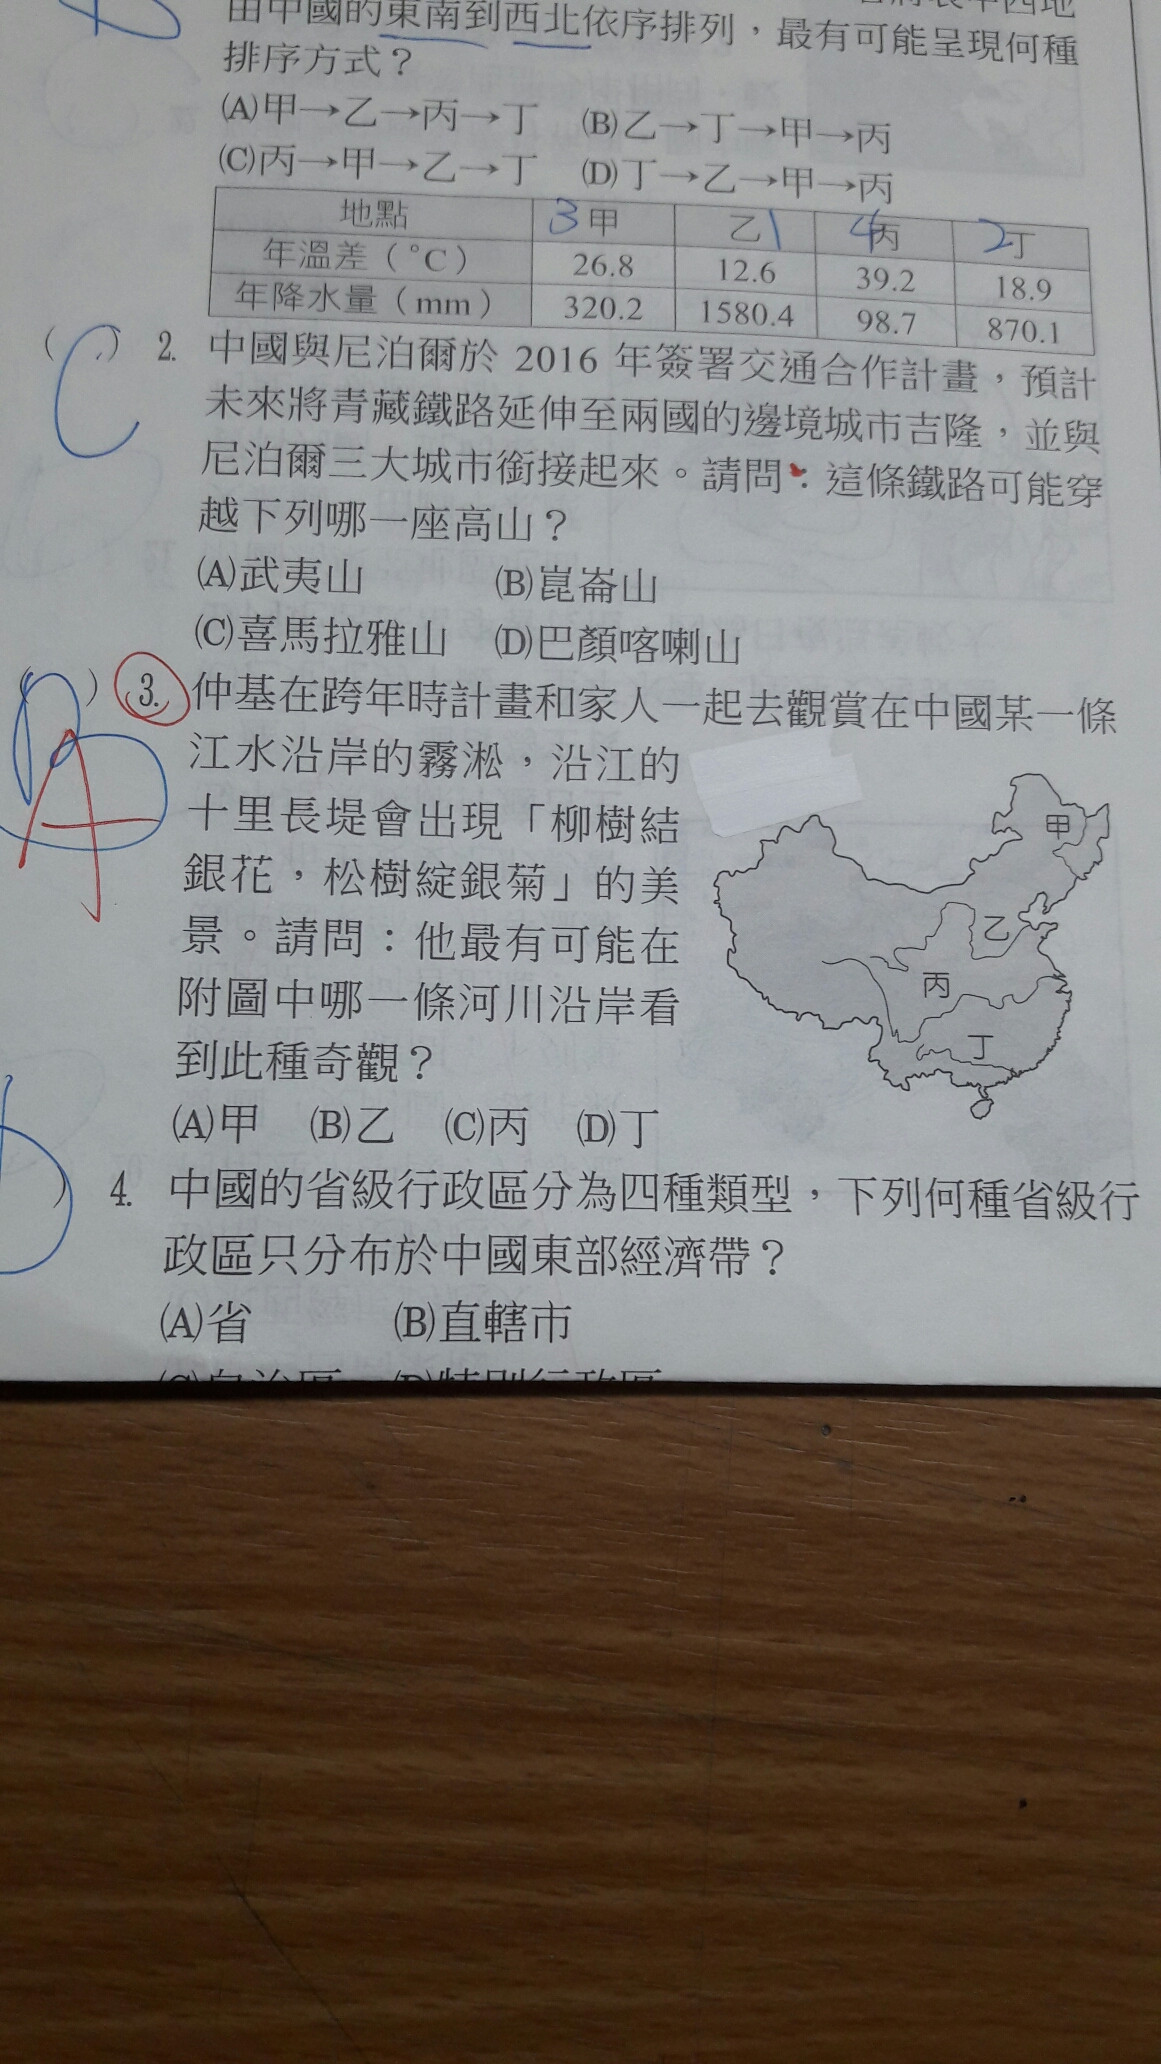 由中國的東南到西北依序排列，最有可能呈現何種
排序方式？
(A)甲→乙→丙→丁 (B)乙→丁→甲→丙
(C)丙→甲→乙→丁 (D)丁→乙→甲→丙
地點 3甲 乙1 4丙 2丁
年溫差（°C） 26.8 12.6 39.2 18.9
年降水量（mm） 320.2 1580.4 98.7 870.1
( C ) 2. 中國與尼泊爾於 2016 年簽署交通合作計畫，預計
未來將青藏鐵路延伸至兩國的邊境城市吉隆，並與
尼泊爾三大城市銜接起來。請問：這條鐵路可能穿
越下列哪一座高山？
(A)武夷山 (B)崑崙山
(C)喜馬拉雅山 (D)巴顏喀喇山
( A ) 3. 仲基在跨年時計畫和家人一起去觀賞在中國某一條
江水沿岸的霧淞，沿江的
十里長堤會出現「柳樹結
銀花，松樹綻銀菊」的美
景。請問：他最有可能在
附圖中哪一條河川沿岸看
到此種奇觀？
甲
乙
丙
丁
(A)甲 (B)乙 (C)丙 (D)丁
D ) 4. 中國的省級行政區分為四種類型，下列何種省級行
政區只分布於中國東部經濟帶？
(A)省 (B)直轄市
(C)自治區 (D)特別行政區